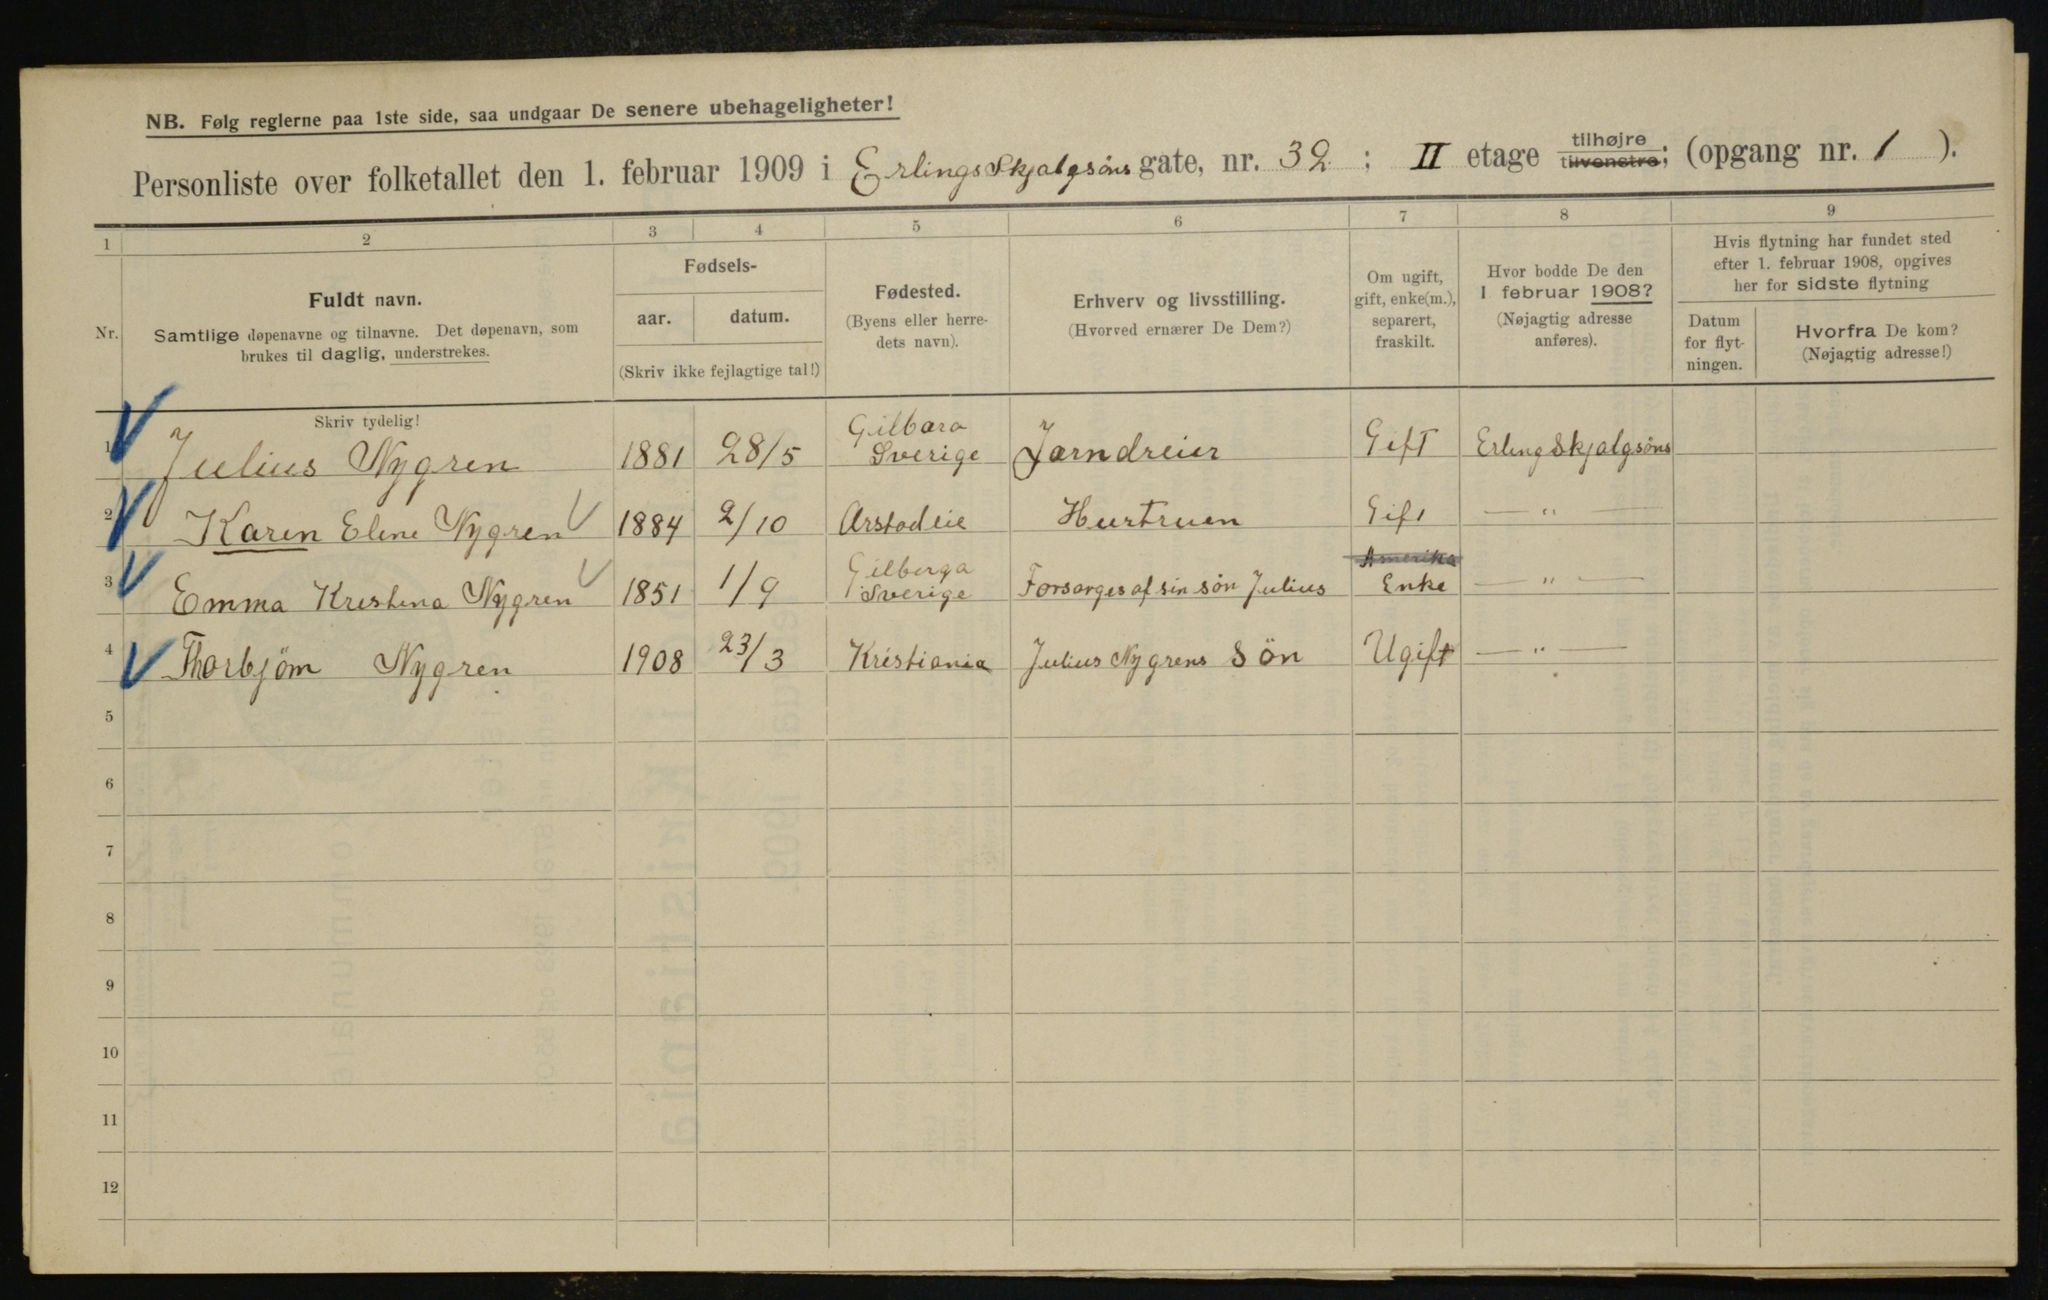 NB. Følg reglerne paa 1ste side, saa undgaar De senere ubehageligheter!
Personliste over folketallet den 1. februar 1909 i Erlings Skjalgsöns gate, nr. 32 : II etage tilhøjre tilvenstre; (opgang nr. 1 ).
1 2 3 4 5 6 7 8 9
Nr.
Fuldt navn.
Samtlige døpenavne og tilnavne. Det døpenavn, som
brukes til daglig, understrekes.
Fødsels-
aar. datum.
(Skriv ikke fejlagtige tal!)
Fødested.
(Byens eller herre-
dets navn).
Erhverv og livsstilling.
(Hvorved ernærer De Dem?)
Om ugift,
gift, enke(m.),
separert,
fraskilt.
Hvor bodde De den
1 februar 1908?
(Nøjagtig adresse
anføres).
Hvis flytning har fundet sted
efter 1. februar 1908, opgives
her for sidste flytning
Datum
for flyt-
ningen.
Hvorfra De kom?
(Nøjagtig adresse!)
Skriv tydelig!
1 Julius Nygren 1881 28/5 Gilbara Sverige Jarndreier Gift Erling Skjalgsöns
2 Karen Elene Nygren 1884 2/10 Arstadeie Hustruen Gift — " —
3 Emma Kristina Nygren 1851 1/9 Gilberga Sverige Forsørges af sin sön Julius Amerika Enke — " —
4 Thorbjörn Nygren 1908 23/3 Kristiania Julius Nygrens Sön Ugift — " —
5
6
7
8
9
10
11
12